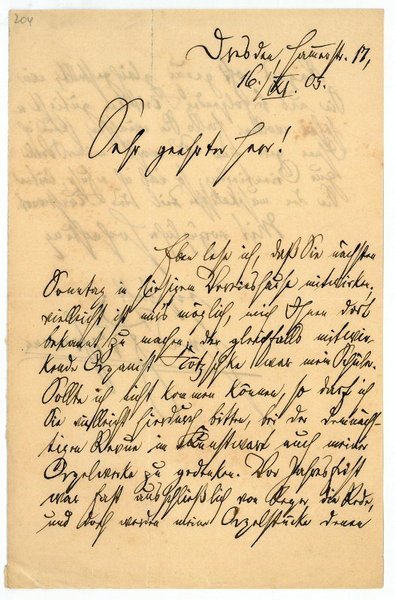 204
Dresden, Hammerstr. 17,
16. XI. 05.
Sehr geehrter Herr!
Eben lese ich, daß Sie nächsten
Sonntag in hiesigen Vereinshause mitwirken.
Vielleicht ist mir's möglich, mich Ihnen dort
bekannt zu machen, der gleichfalls mitwir-
kende Organist war mein Schüler.
Sollte ich nicht kommen können, so darf ich
Sie vielleicht hierdurch bitten, bei der demnäch-
stigen Revue im Kunstwart auch meiner
Orgelwerke zu gedenken. Vor Jahresfrist
war fast ausschließlich von Reger die Rede,
und doch werden meine Orgelstücke denen